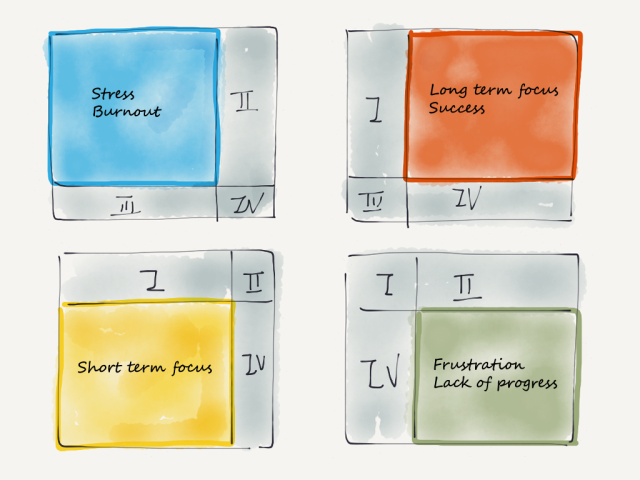 Stress
Burnout
II
III
IV
I
Long term focus
Success
III
IV
I
II
Short term focus
IV
I
II
IV
Frustration
Lack of progress